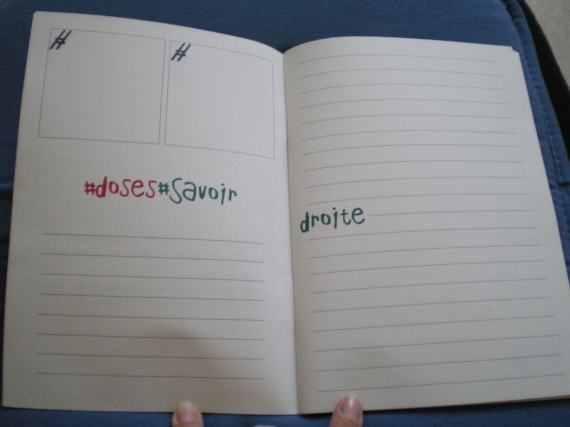 # #
#doses#savoir
droite